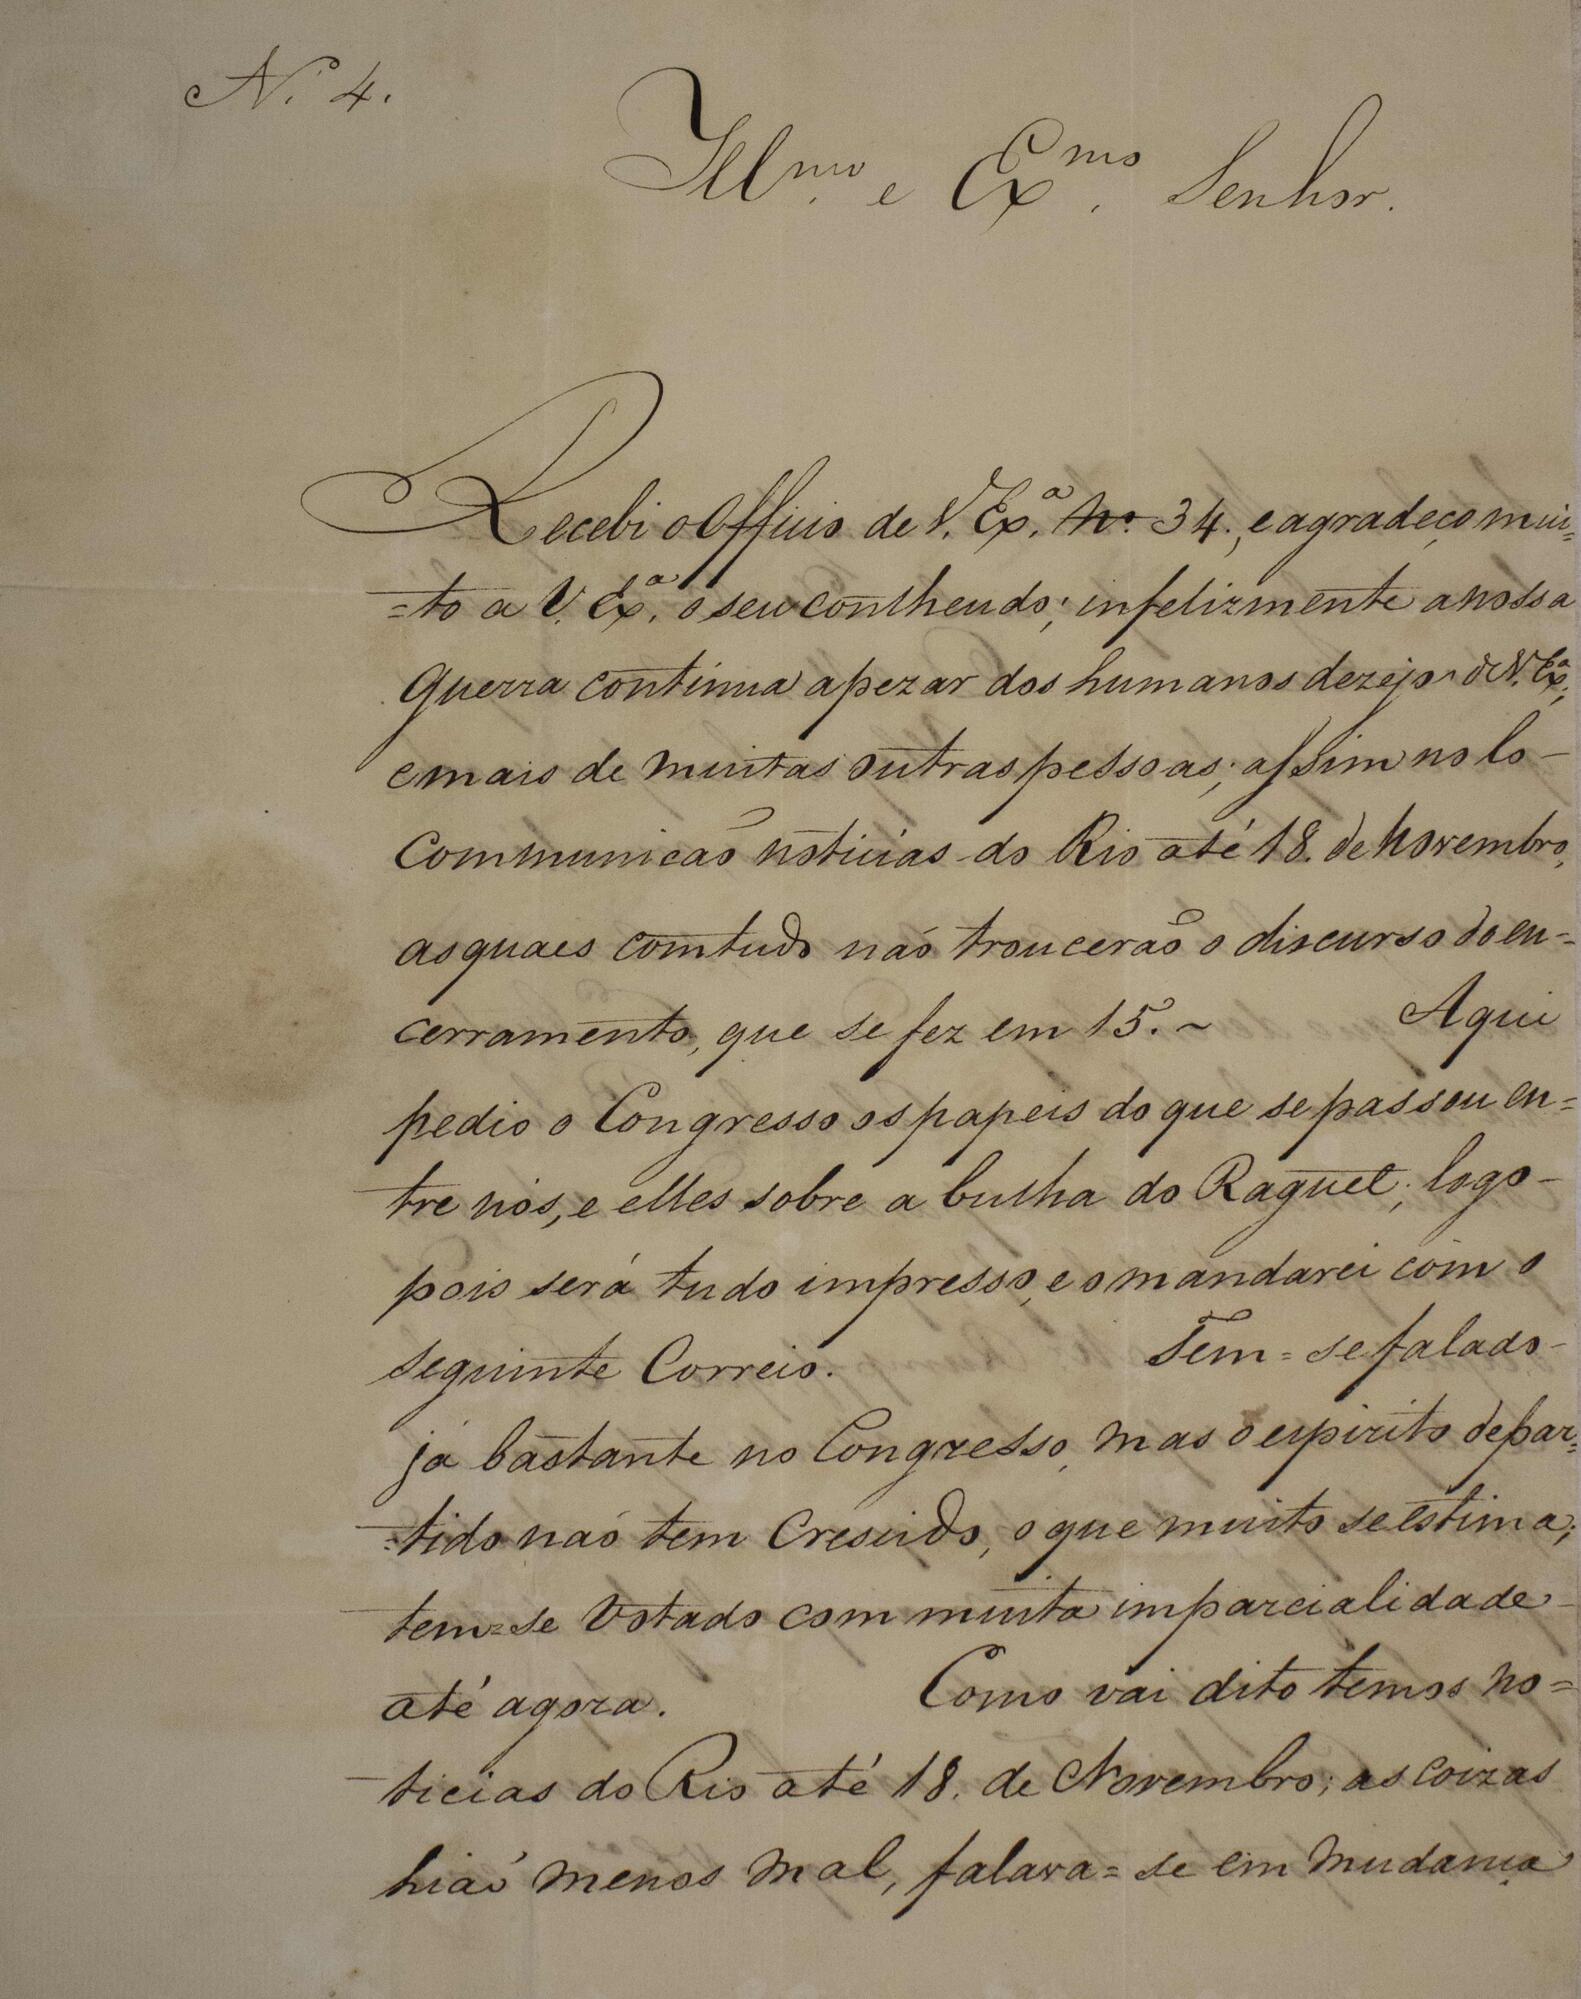 N.º 4.
Illmo. e Exmo. Senhor.
Recebi o Officio de V. Ex.ª No. 34., e agradeço mui=
=to a V. Ex.ª o seu contheudo; infelizmente a nossa
guerra continua apezar dos humanos dezejos de V. Exª,
e mais de muitas outras pessoas; assim no lo
communicaõ noticias do Rio até 18. de Novembro,
as quaes comtudo naõ trouceraõ o discurso do en=
cerramento, que se fez em 15. ~ Aqui
pedio o Congresso os papeis do que se passou en=
tre nós, e elles sobre a bulha do Raguet; logo
pois será tudo impresso, e o mandarei com o
seguinte Correio. Tem=se falado
já bastante no Congresso, mas o espirito de par=
=tido naõ tem crescido, o que muito se estima;
tem=se votado com muita imparcialidade
até agora. Como vai dito temos no=
ticias do Rio até 18. de Novembro; as coizas
hiaõ menos mal, falava=se em mudança